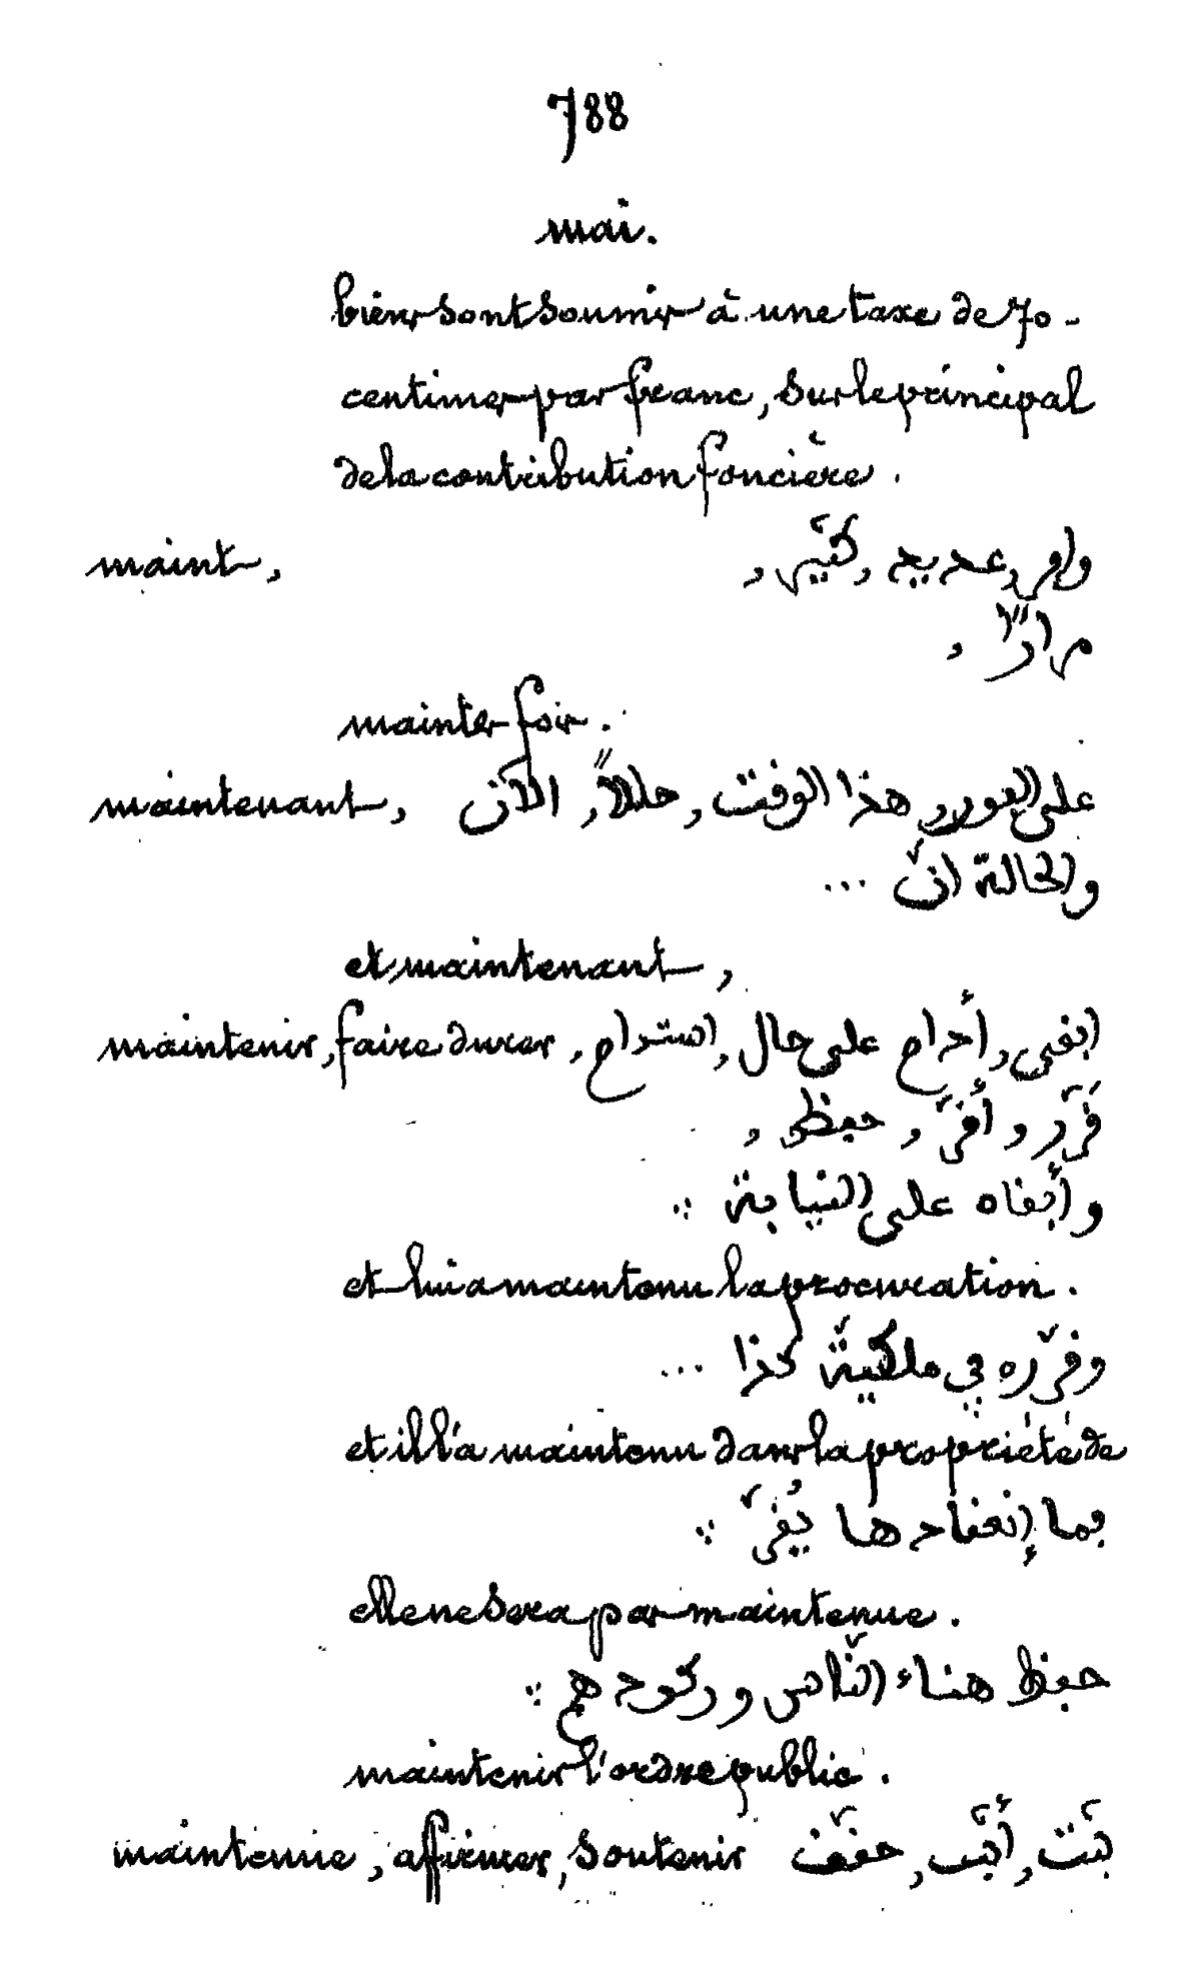 788
mai.
biens sont soumis à une taxe de 70
centimes par franc, sur le principal
de la contribution foncière.
maint, وافر, عديد, كثير,
مرارًا,
maintes fois.
maintenant, على الفور, هذا الوقت, حالاً, الآن
والحالة انّ ...
et maintenant,
maintenir, faire durer, ابقى, أدام على حال, استدام,
قَرّر و أقرّ, حفظ,
وأبقاه على النيابة
et lui a maintenu la procuration.
وقرّره في ملكيّة كذا ...
et il l'a maintenu dans la propriété de
فما إنعقادها يُقرّ
elle ne sera pas maintenue.
حفظ هناء النّاس وركودهم
maintenir l'ordre public.
maintenir, affirmer, soutenir ثبّت, أثبت, حقّق